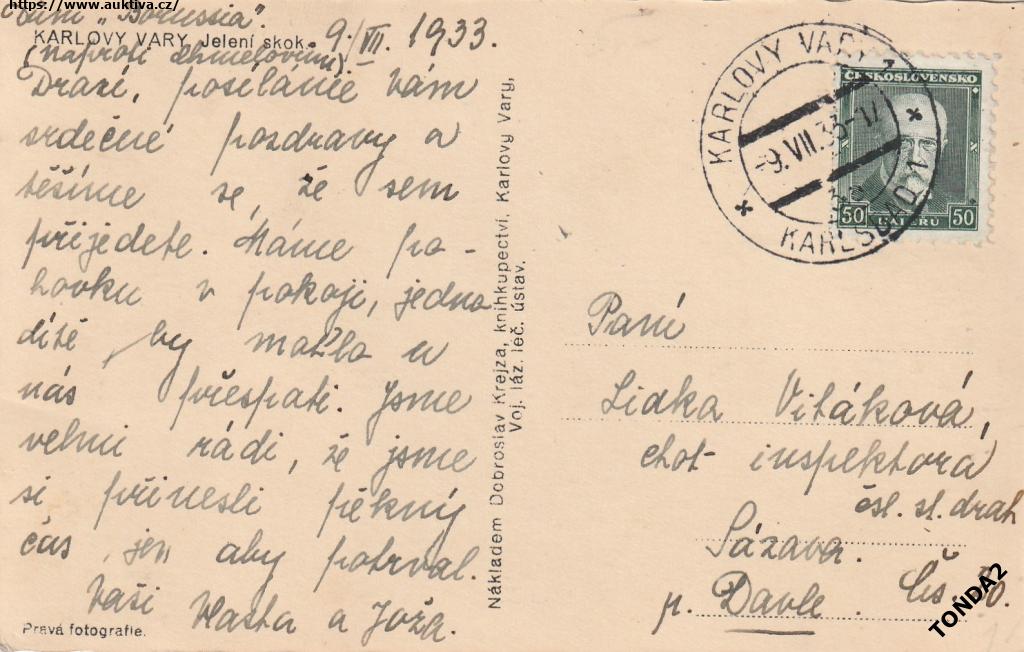 https://www.auktiva.cz/
"Borussia".
KARLOVY VARY, Jelení skok.
9/VII. 1933.
(naproti Chmelovým)
Drazí, posíláme Vám
srdečné pozdravy a
těšíme se, že sem
přijedete. Máme po-
hovku v pokoji, jedno
dítě by mohlo u
nás přespati. Jsme
velmi rádi, že jsme
si přinesli pěkný
čas, jen aby potrval.
Vaši Vlasta a Joža.
Pravá fotografie.
Nákladem Dobroslav Krejza, knihkupectví, Karlovy Vary,
Voj. láz. léč. ústav.
KARLOVY VARY 1
-9.VII.33-17
KARLSBAD 1
ČESKOSLOVENSKO
50 HALÉŘŮ 50
Paní
Lidka Vitáková,
choť inspektora
čsl. st. drah
Sázava. Čís. 80.
p. Davle.
TONDA2